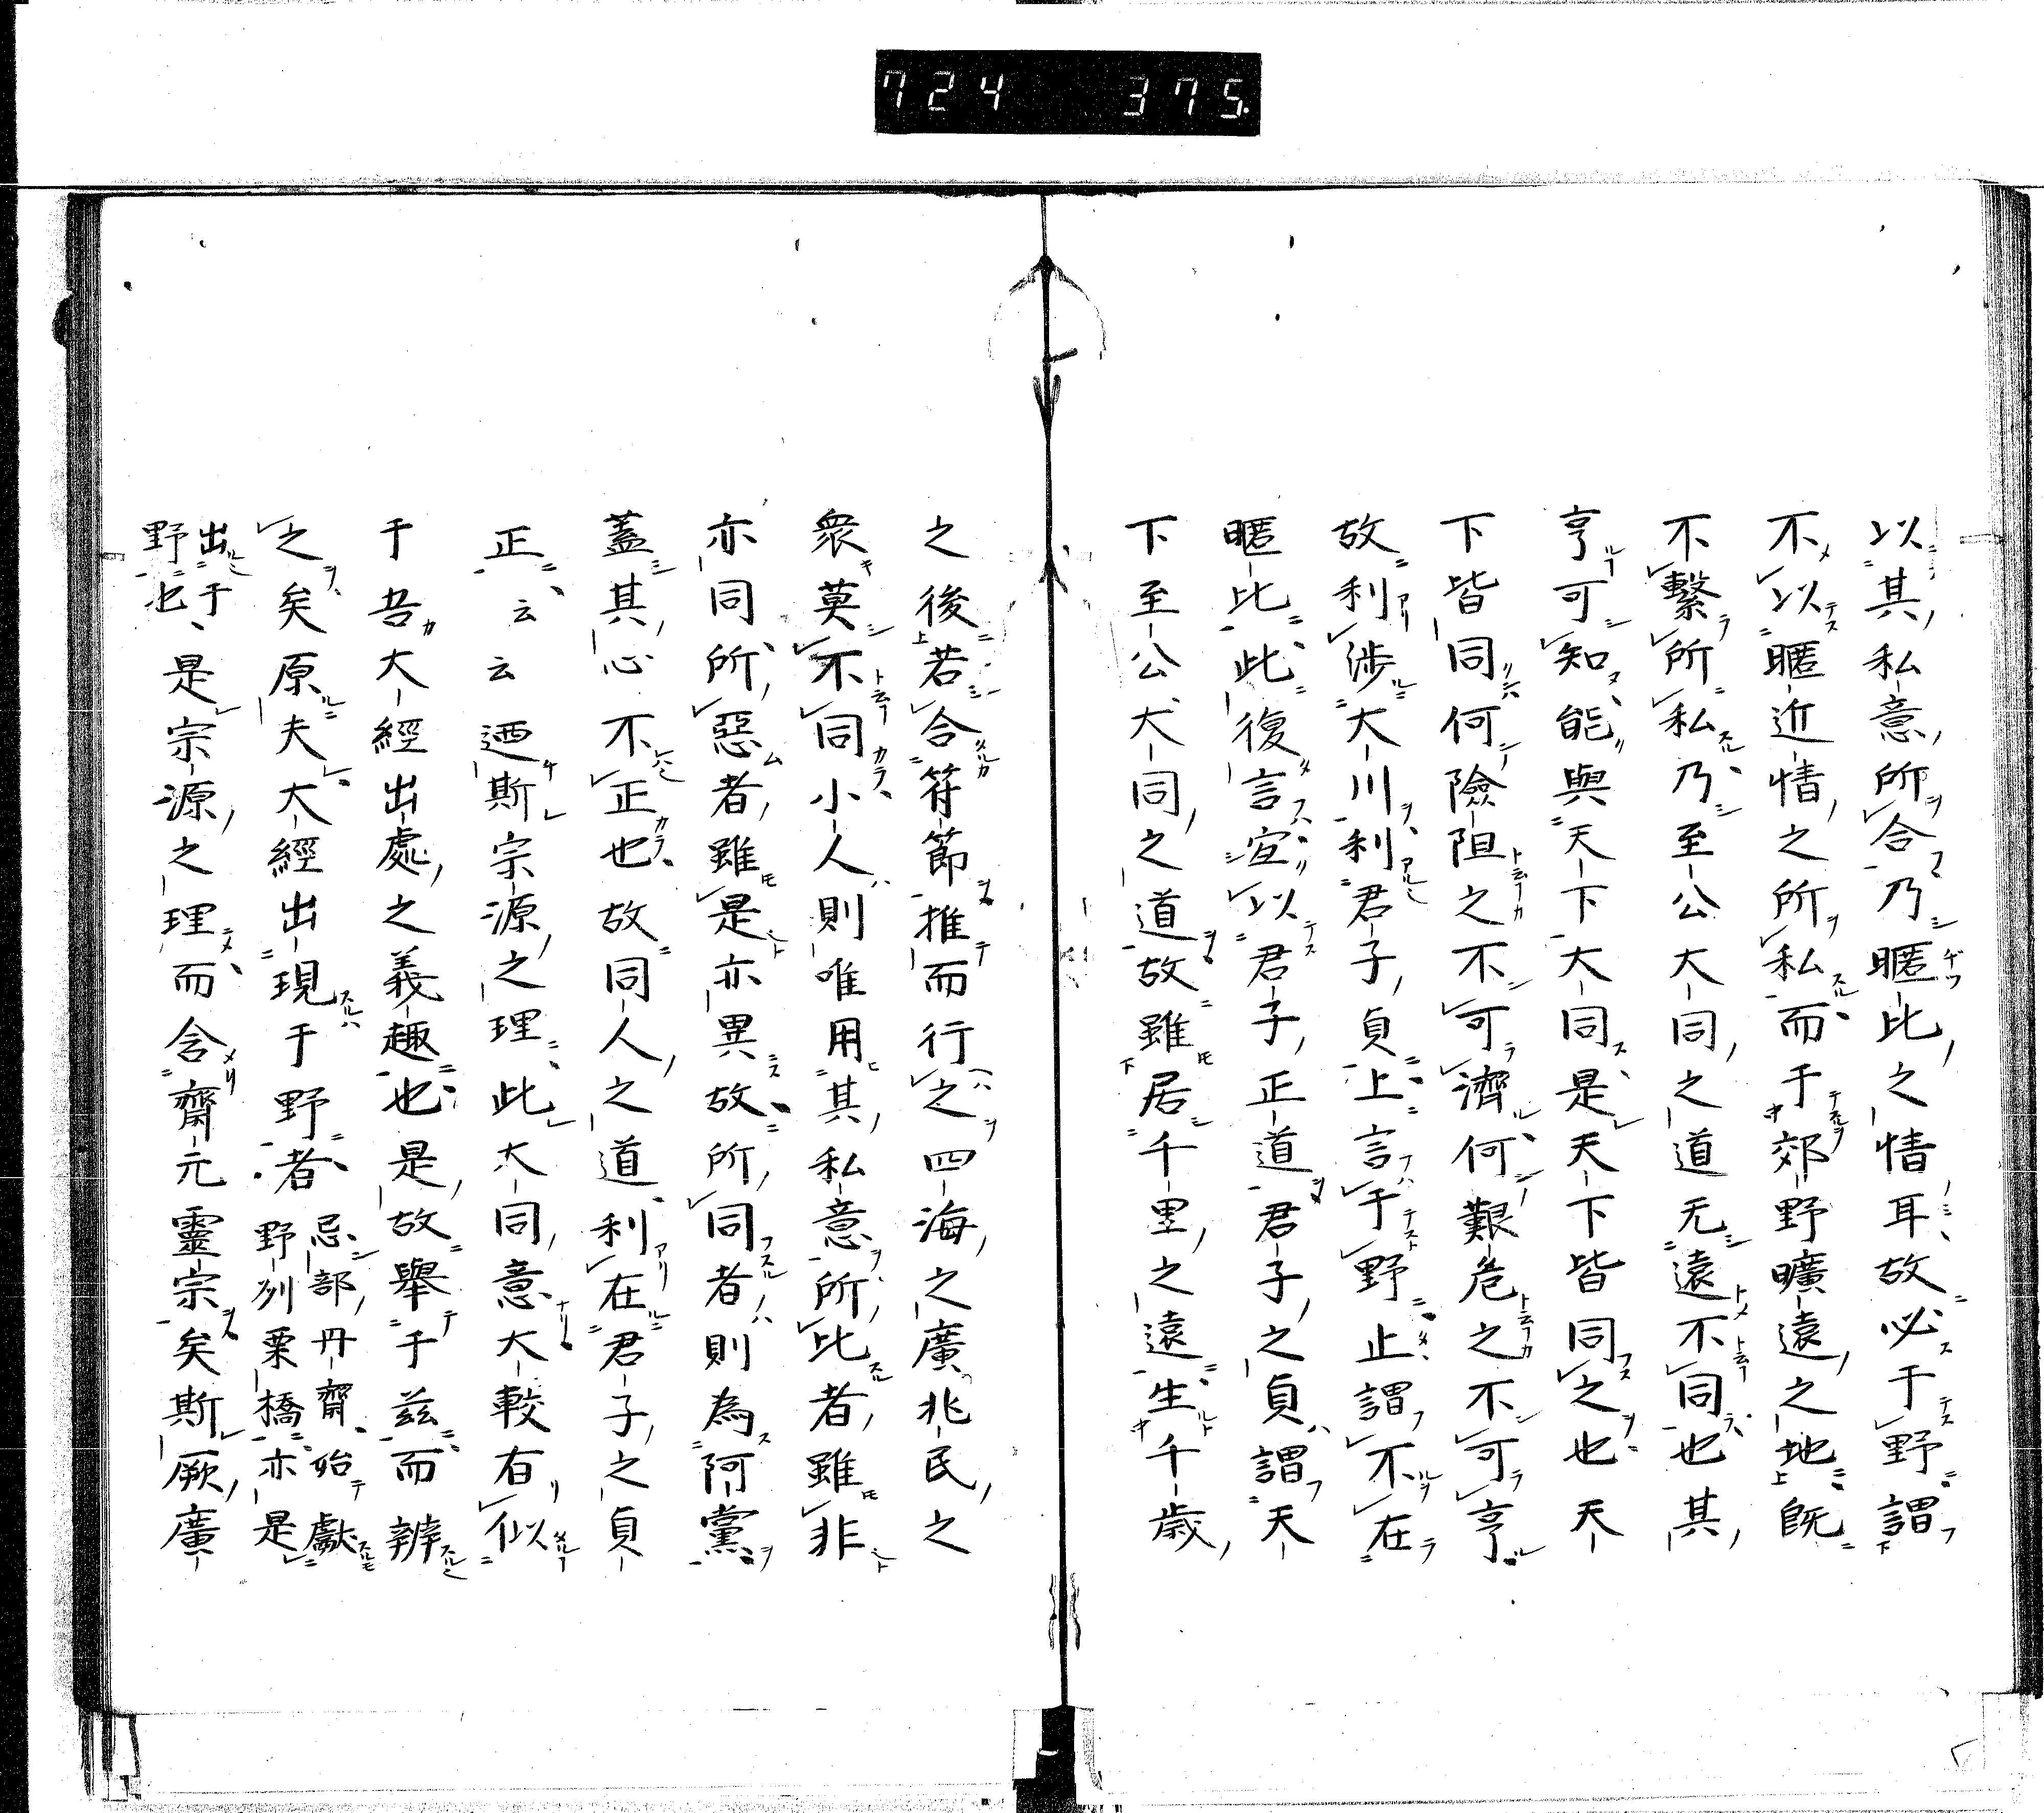 724 375
以其私意所合乃暱比之情耳故必于野謂
不以暱近情之所私而于郊野曠遠之地既
不繫所私乃至公大同之道无遠不同也其
亨可知能與天下大同是天下皆同之也天
下皆同何險阻之不可濟何艱危之不可亨
故利涉大川利君子貞上言于野止謂不在
暱比此復言宜以君子正道君子之貞謂天
下至公大同之道故雖居千里之遠生千歲
之後若合符節推而行之四海之廣兆民之
衆莫不同小人則唯用其私意所比者雖非
亦同所惡者雖是亦異故所同者則為阿黨
蓋其心不正也故同人之道利在君子之貞
正云云迺斯宗源之理此大同意大較有似
于吾大經出處之義趣也是故舉于茲而辨
之矣原夫大經出現于野者忌部丹齋始獻
野州粟橋亦是
出于
野也是宗源之理而含齋元靈宗矣斯厥廣